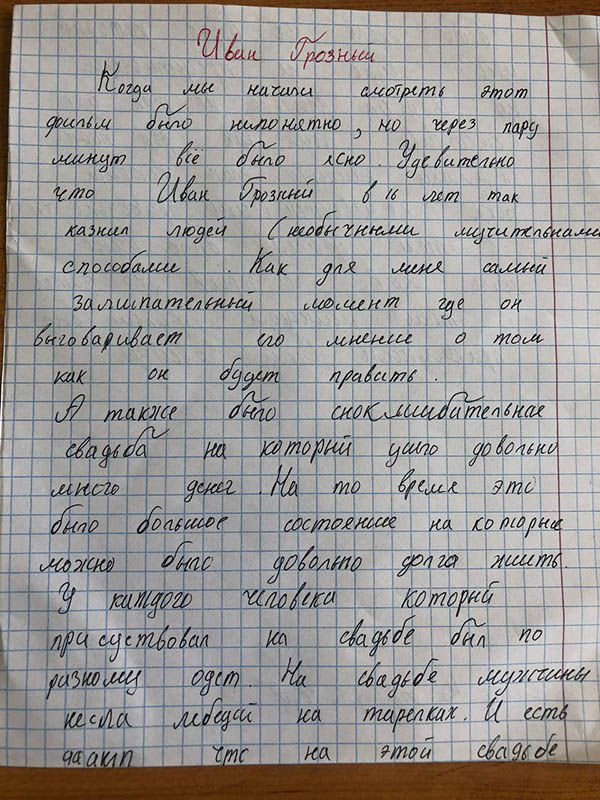 Иван Грозный
Когда мы начали смотреть этот
фильм было нипонятно, но через пару
минут всё было ясно. Удевительно
что Иван Грозный в 16 лет так
казнил людей (необычными мучительнами
способами. Как для меня самый
запипательный момент где он
выговаривает его мнение о том
как он будет править.
А также было
свадьба на который ушло довольно
много денег. На то время это
было большое состояние на которые
можно было довольно долга жить.
У каждого человека который
присуствовал на свадьбе был по
разному одет. На свадьбе мужчины
несла лебедей на тарелках. И есть
что на этой свадьбе